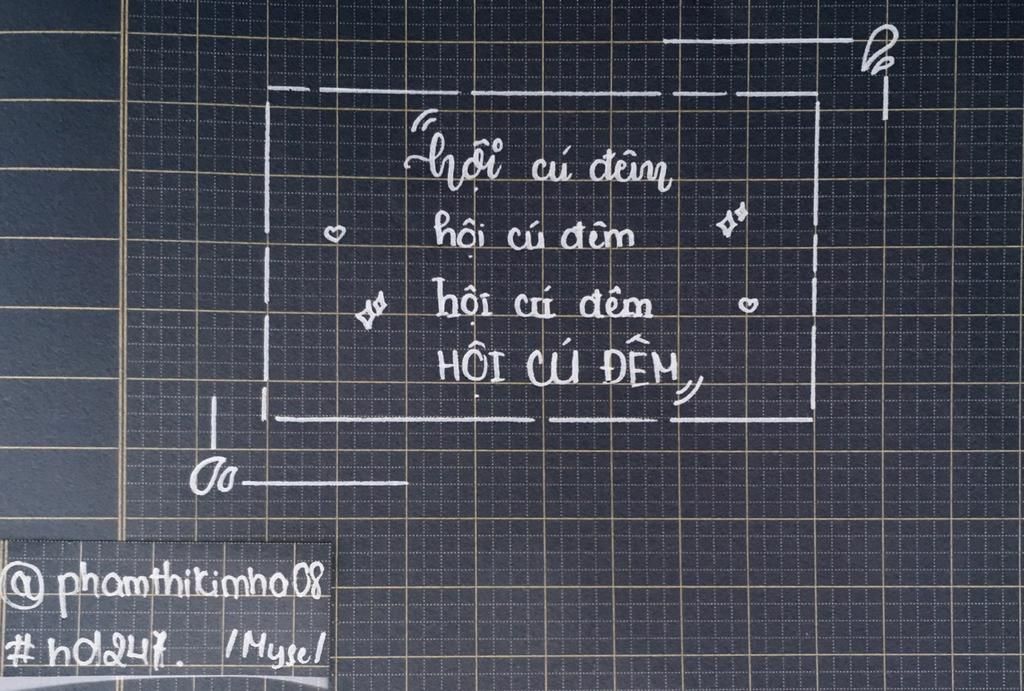 hội cú đêm
hội cú đêm
hội cú đêm
HỘI CÚ ĐÊM
@phamthikimho08
#nd247. /Myse/